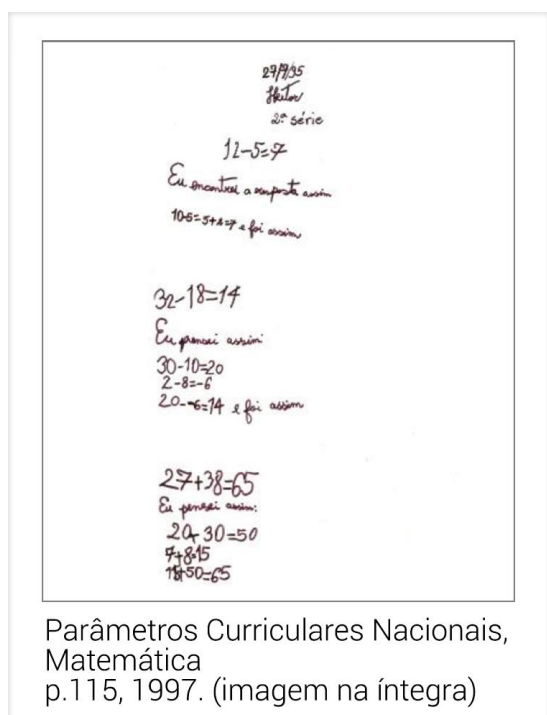 27/9/95
Heitor
2ª série
12-5=7
Eu encontrei a resposta assim
10-5=5+2=7 e foi assim
32-18=14
Eu pensei assim:
30-10=20
2-8=-6
20--6=14 e foi assim
27+38=65
Eu pensei assim:
20+30=50
7+8=15
15+50=65
Parâmetros Curriculares Nacionais,
Matemática
p.115, 1997. (imagem na íntegra)